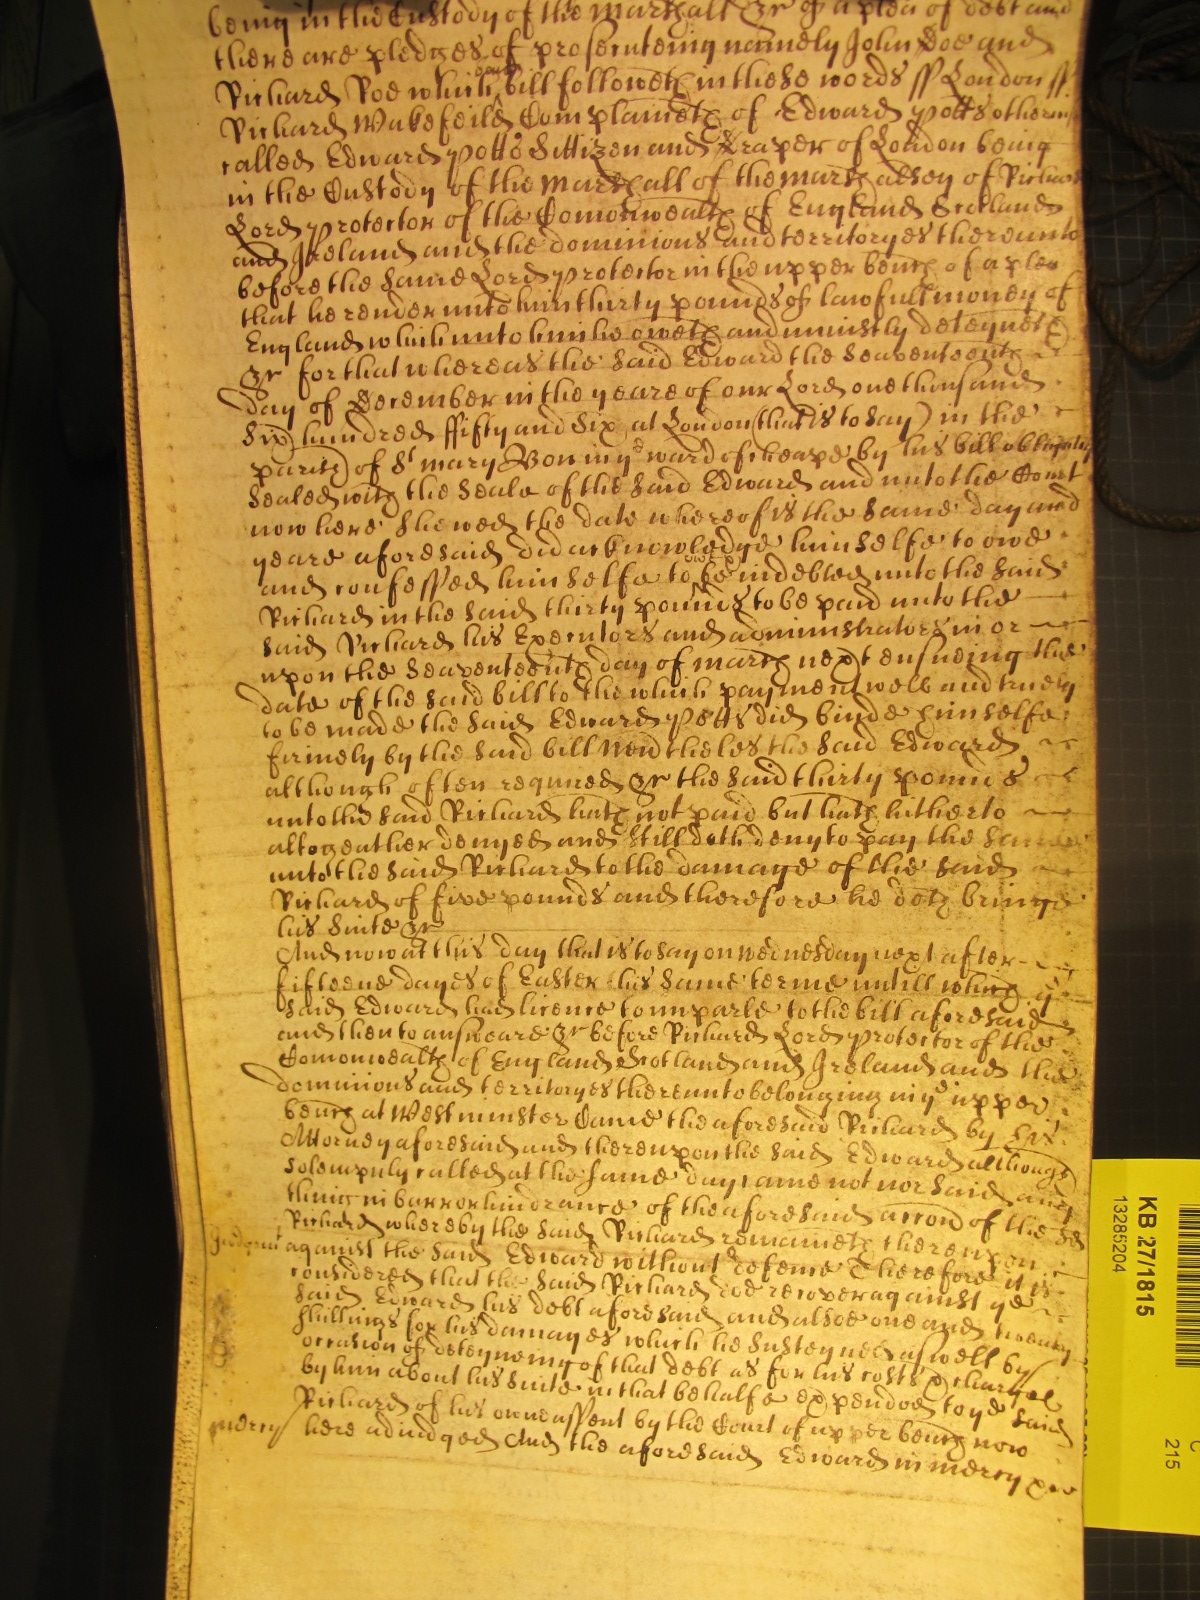 being in the Custody of the Marshall &c of a plea of debt and
there are pledges of prosecuteing namely John Doe and
Richard Roe which said bill followeth in these words ss London ss
Richard Wakefeild Complaineth of Edward Potts otherwise
called Edward Potts Cittizen and Draper of London being
in the Custody of the Marshall of the Marshalsey of Richard
Lord Protector of the Comonwealth of England Scotland
and Ireland and the dominions and territoryes thereunto
before the same Lord Protector in the upper bench of a plea
that he render unto him thirty pounds of lawfull money of
England which unto him he oweth and uniustly deteyneth
&c for that whereas the said Edward the seaventeenth
day of December in the yeare of our Lord one thousand
six hundred ffifty and six at London (that is to say) in the
parish of St Mary Bow in ye ward of cheape by his bill obligatory
sealed with the seale of the said Edward and unto the Court
now here shewed the date whereof is the same day and
yeare aforesaid did acknowledge himselfe to owe
and confessed himselfe to be indebted unto the said
Richard in the said thirty pounds to be paid unto the
said Richard his Executors and administrators in or
upon the seaventeenth day of March next ensueing the
date of the said bill to the which payment well and truely
to be made the said Edward Potts did binde himselfe
firmely by the said bill Neverthelesse the said Edward
although often required &c the said thirty pounds
unto the said Richard hath not paid but hath hitherto
altogeather denyed and still doth deny to pay the same
unto the said Richard to the damage of the said
Richard of five pounds and therefore he doth bringe
his suite &c
And now at this day that is to say on wednesday next after
fifteene dayes of Easter this same terme untill which ye
said Edward had licence to imparle to the bill aforesaid
and then to answeare &c before Richard Lord Protector of the
Comonwealth of England Scotland and Ireland and the
dominions and territoryes thereunto belonging in ye upper
bench at Westminster Came the aforesaid Richard by his
Attorney aforesaid and thereupon the said Edward although
solempnly called at the same day came not nor said any
thing in barr or hindrance of the aforesaid accon of the sd
Richard whereby the said Richard remaineth thereupon
Judgment against the said Edward without defence Therefore it is
considered that the said Richard doe recover against ye
said Edward his debt aforesaid and alsoe one and twenty
shillings for his damages which he susteyned aswell by
occasion of deteyneing of that debt as for his costs & charges
by him about his suite in that behalfe expended to ye said
Richard of his owne assent by the Court of upper bench now
mercy here adiudged And the aforesaid Edward in mercy &c
KB 27/1815
13285204
215